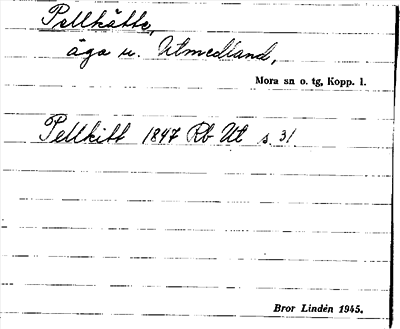 Pellkätte,
äga u. Utmedland,
Mora sn o. tg, Kopp. l.
Pellkitt 1847 Rb Ut s. 31
Bror Lindén 1945.